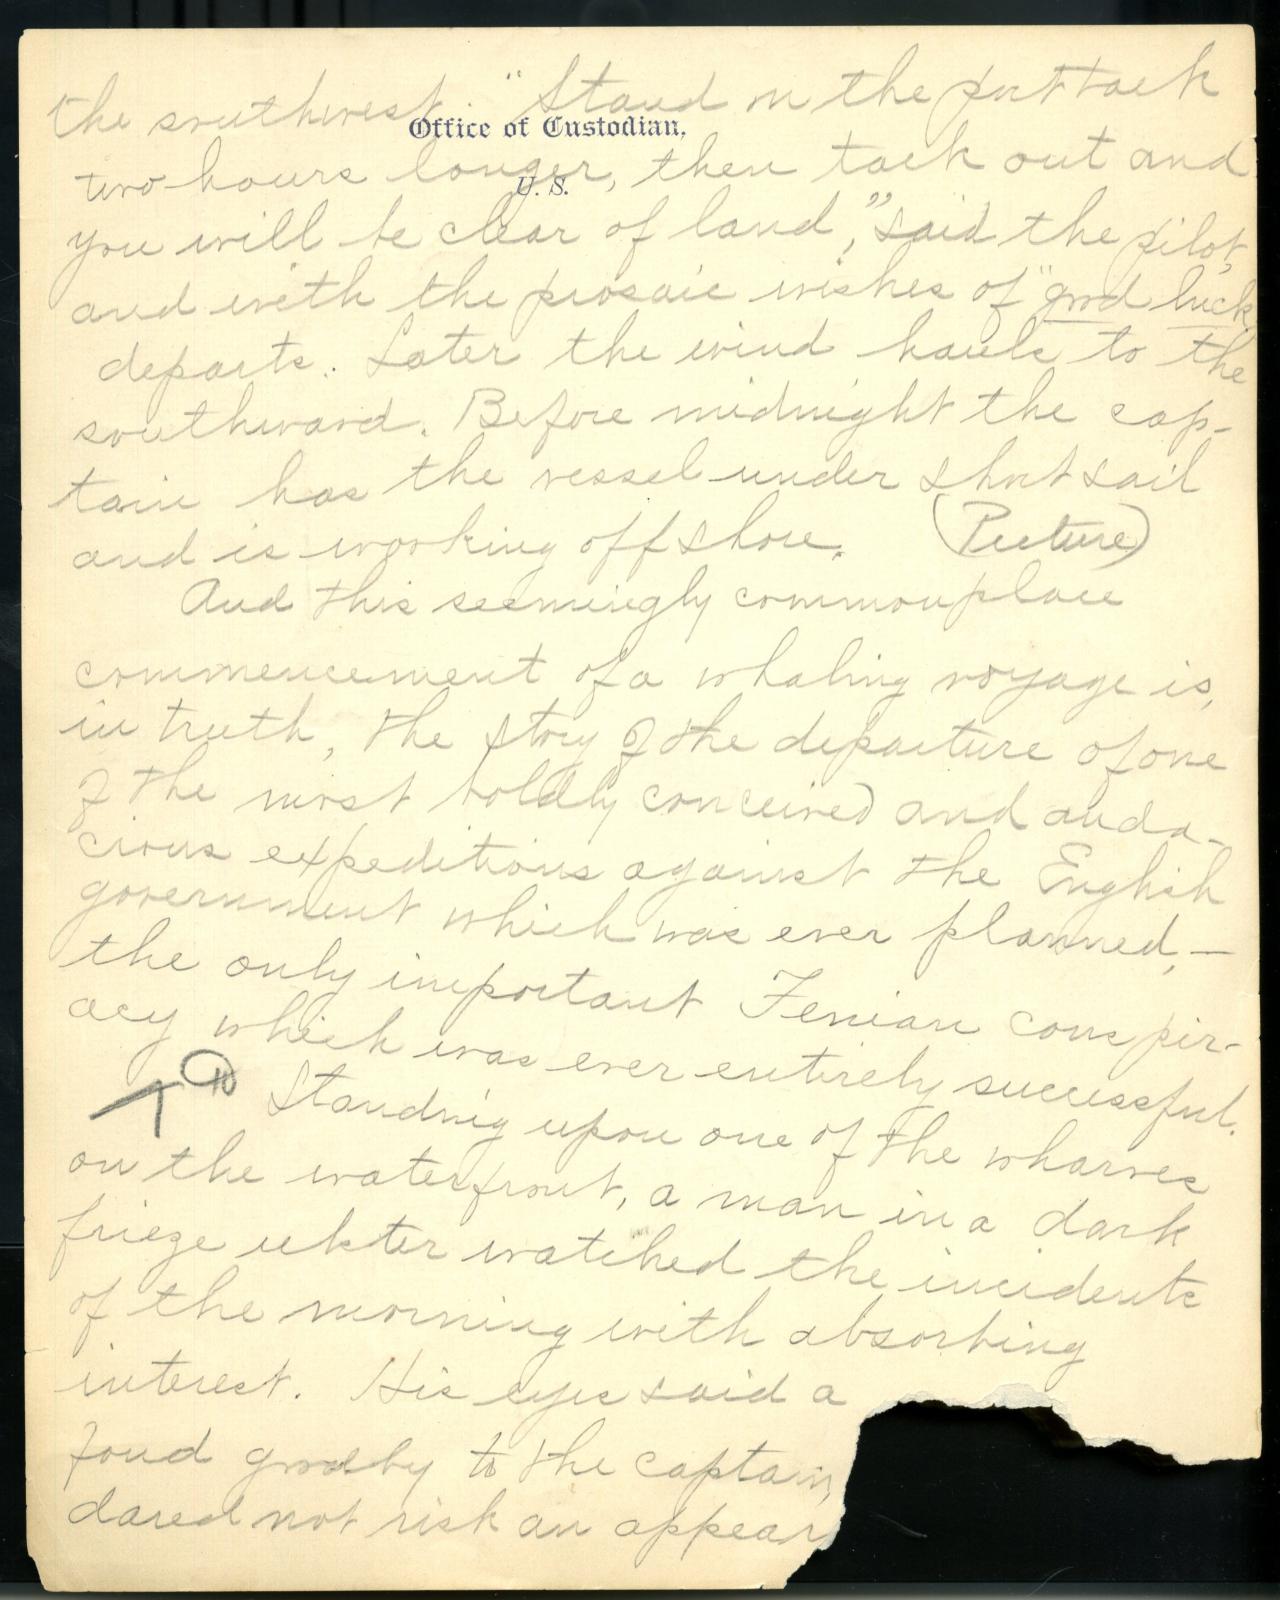 the southwest. "Stand on the port tack
Office of Custodian,
two hours longer, then tack out and
U. S.
you will be clear of land," said the pilot,
and with the prosaic wishes of "good luck
departs. Later the wind hauls to the
southward. Before midnight the cap-
tain has the vessel under short sail
and is working off shore. (Picture)
And this seemingly commonplace
commencement of a whaling voyage is,
in truth, the story of the departure of one
of the most boldly conceived and auda-
cious expeditions against the English
government which was ever planned, —
the only important Fenian conspir-
acy which was ever entirely successful.
Standing upon one of the wharves
on the waterfront, a man in a dark
frieze ulster watched the incidents
of the morning with absorbing
interest. His eyes said a
fond goodby to the captain,
dared not risk an appear